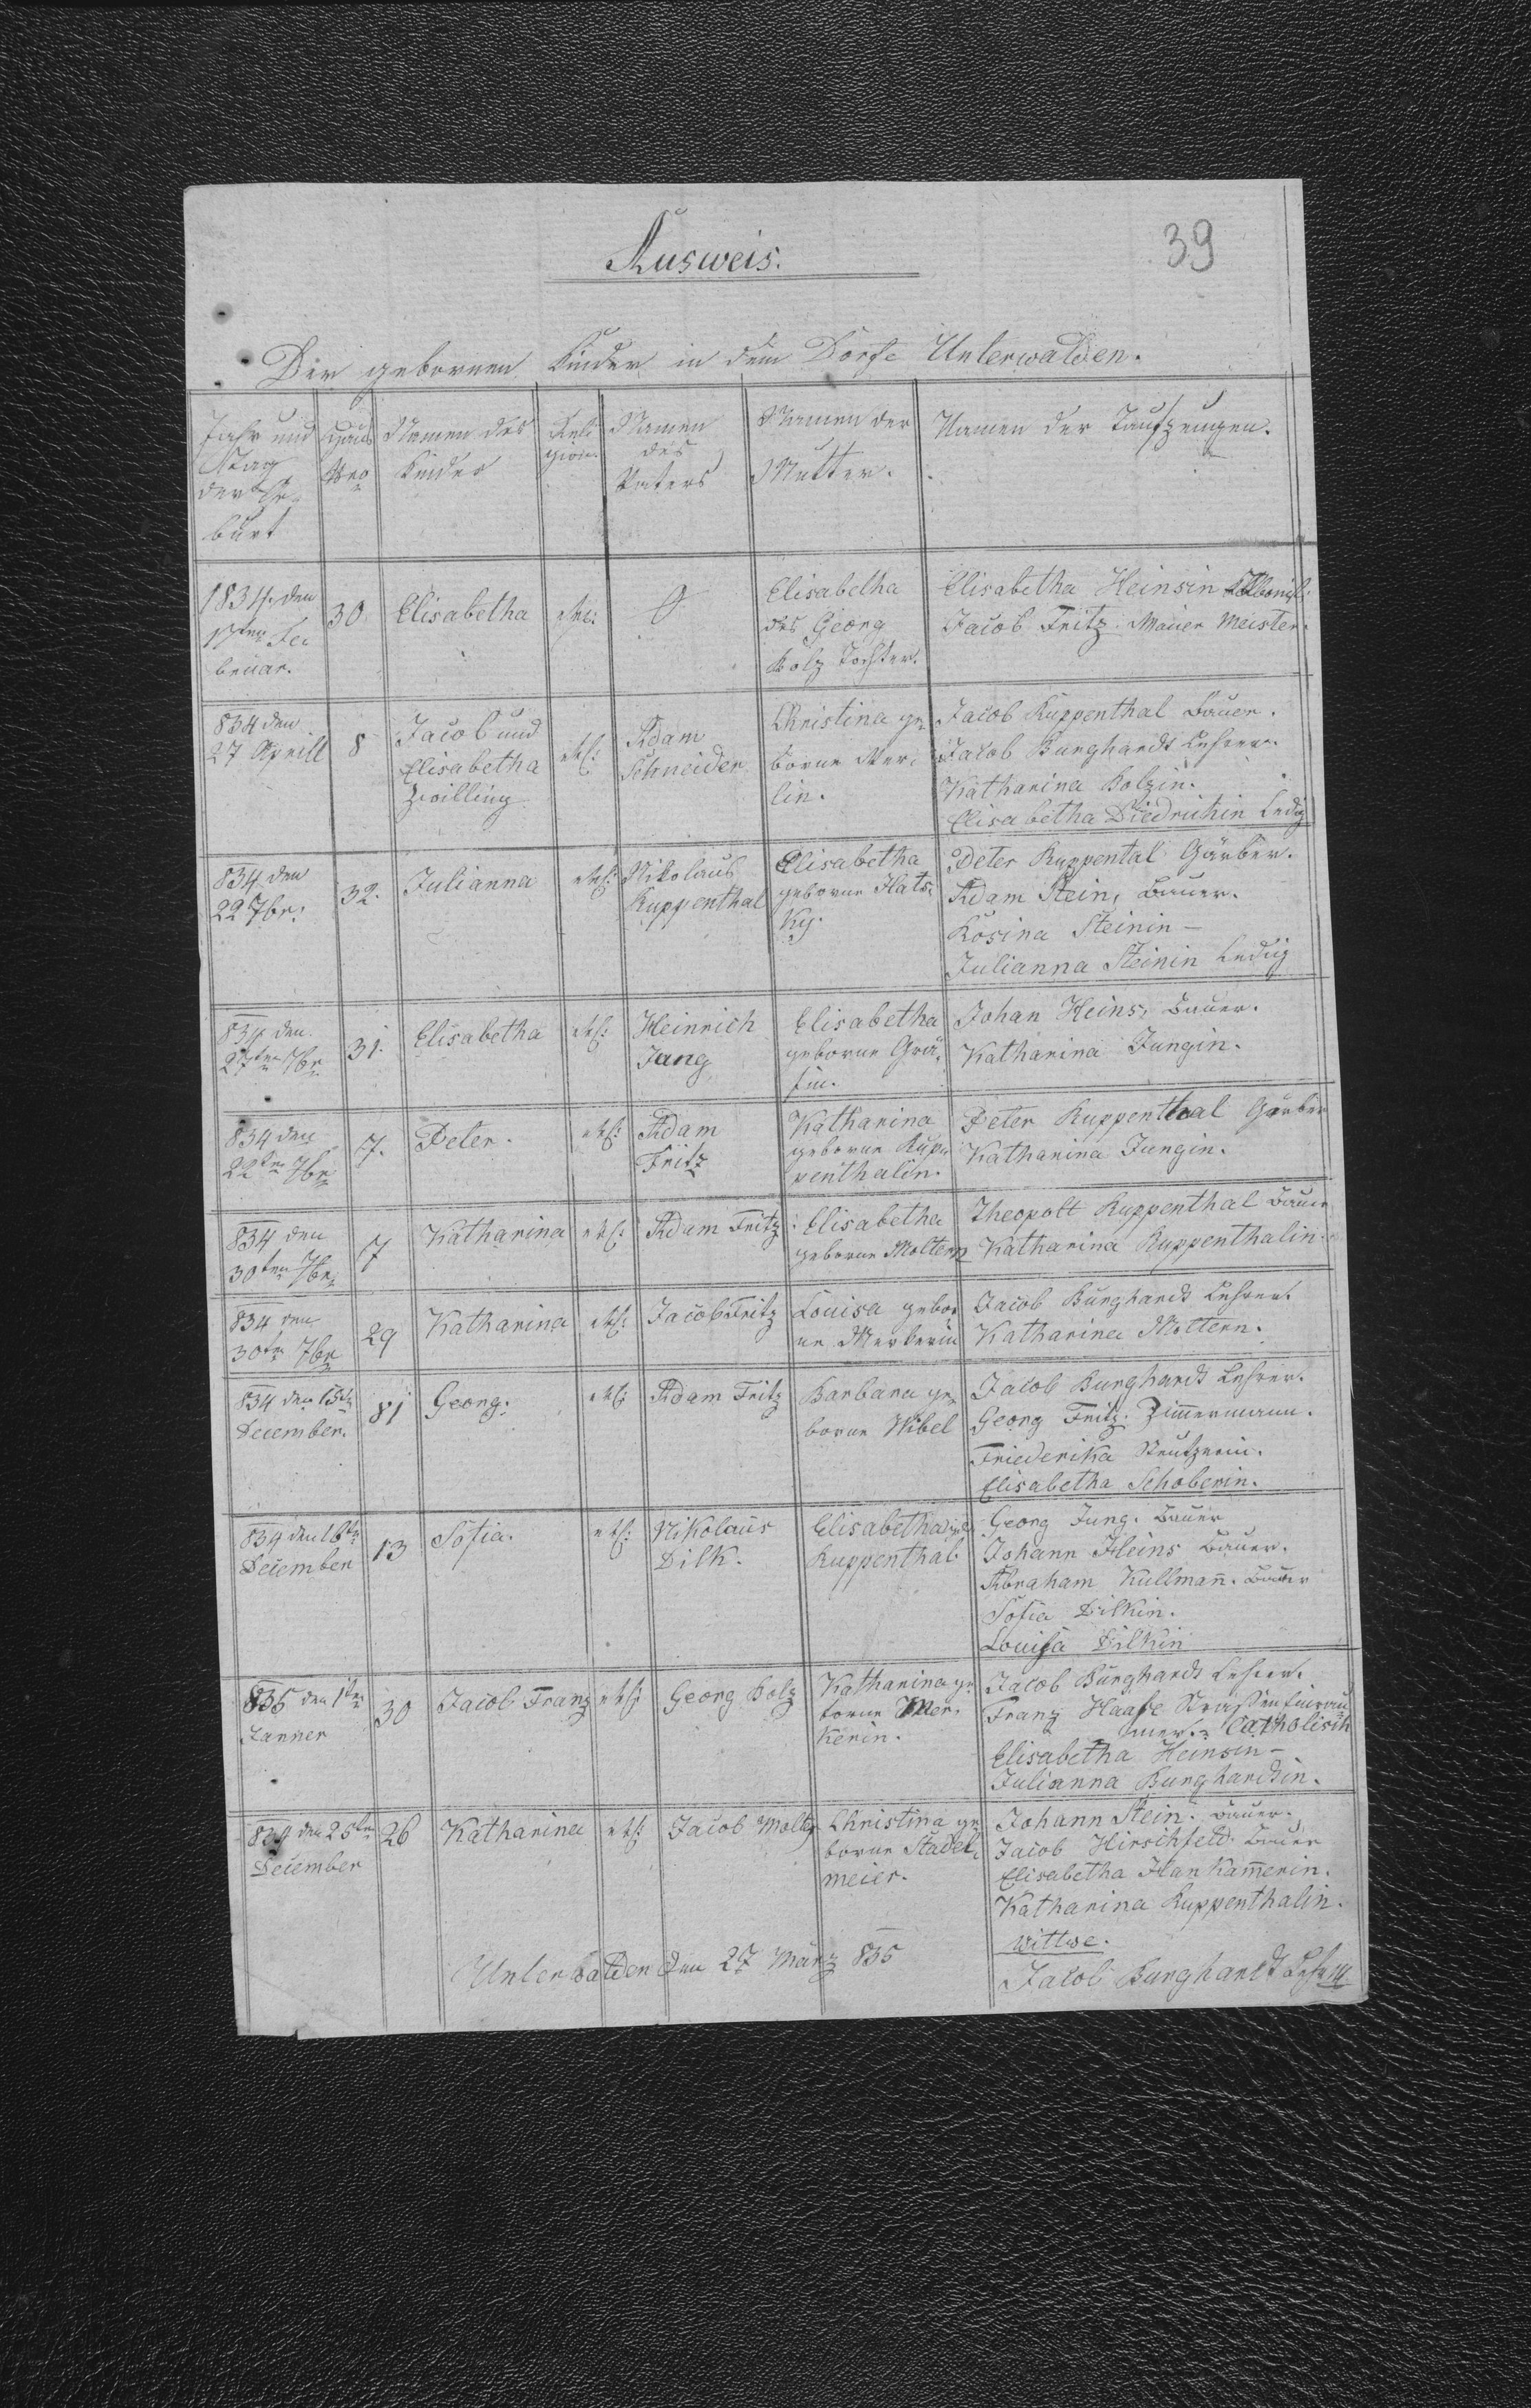 39
Ausweis.
Der gebornen Kinder in dem Dorfe Unterwalden.
Jahr und Tag der Ge- burt
Haus Nro
Namen des Kindes
Reli gion.
Namen des Vaters
Namen der Mutter.
Namen der Taufzeugen.
1834. den
17ten Fe-
bruar.
30
Elisabetha
O
Elisabetha
des Georg
Bolz Tochter.
Elisabetha Heinsin
Jacob Fritz. Mauer Meister.
834 den
27 Aprill
8
Jacob und
Elisabetha
Zwilling
Adam
Schneider
Christina ge-
borne Mer-
lin.
Jacob Ruppenthal Bauer.
Jacob Burghardt Lehrer.
Katharina Bolzin.
Elisabetha Diedrichin Ledig
834 den
22 7br:
32.
Julianna
Nikolaus
Ruppenthal
Elisabetha
geborne Hats-
Ky.
Peter Ruppental Gärber.
Adam Stein, Bauer.
Rosina Steinin –
Julianna Steinin Ledig
834 den
27ten 7br
31.
Elisabetha
Heinrich
Jung
Elisabetha
geborne Grä-
fin.
Johan Heins, Bauer.
Katharina Jungin.
834 den
22ten 7br
7.
Peter.
Adam
Fritz
Katharina
geborne Rup-
penthalin.
Peter Ruppenthal Gärber
Katharina Jungin.
834 den
30ten 7br
7
Katharina
Adam Fritz
Elisabetha
geborne Moltern
Theopolt Ruppenthal Bauer
Katharina Ruppenthalin.
834 den
30ten 7br
29
Katharina
Jacob Fritz
Louisa gebor-
ne Merkerin
Jacob Burghardt Lehrer.
Katharina Moltern.
834 den 15ten
December.
81
Georg.
Adam Fritz
Barbara ge-
borne Wibel
Jacob Burghardt Lehrer.
Georg Fritz. Zimmermann.
Friederika
Elisabetha Schoberin.
834 den 16ten
December
13
Sofia.
Nikolaus
Dilk.
Elisabetha
Ruppenthal
Georg Jung. Bauer
Johann Heins Bauer.
Abraham Kullmann. Bauer
Sofia Dilkin.
Louisa Dilkin
835 den 1ten
Janner
30
Jacob Franz
Georg Bolz
Katharina ge-
borne Mer-
kerin.
Jacob Burghardt Lehrer.
Franz Haase Catholisch
Elisabetha Heinsin –
Julianna Burghardtin.
834 den 25ten
December
26
Katharina
Jacob Molter
Christina ge-
borne Stadel-
meier.
Johann Stein. Bauer.
Jacob Hirschfeld. Bauer
Elisabetha Hankammerin.
Katharina Ruppenthalin.
Wittwe.
Unterwalden den 27 März 835
Jacob Burghardt Lehrer